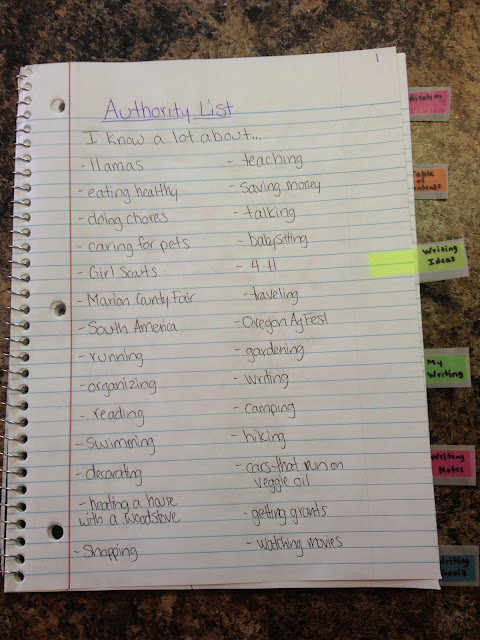 1
Authority List
I know a lot about...
- llamas
- eating healthy
- doing chores
- caring for pets
- Girl Scouts
- Marion County Fair
- South America
- running
- organizing
- reading
- swimming
- decorating
- heating a house
with a woodstove
- Shopping
- teaching
- Saving money
- talking
- babysitting
- 4-H
- traveling
- Oregon Ag Fest
- gardening
- writing
- camping
- hiking
- cars that run on
veggie oil
- getting grants
- watching movies
Table
of
Writing
Ideas
My
Writing
Writing
Notes
Writing
Goals